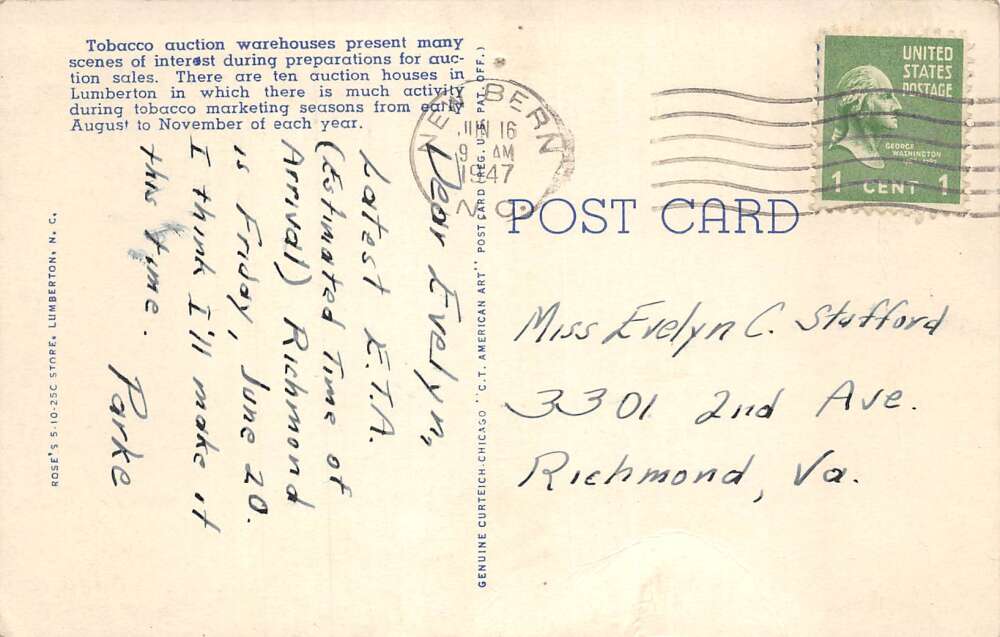 Tobacco auction warehouses present many
scenes of interest during preparations for auc-
tion sales. There are ten auction houses in
Lumberton in which there is much activity
during tobacco marketing seasons from early
August to November of each year.
NEW BERN
JUN 16
9 AM
1947
N.C.
UNITED
STATES
POSTAGE
GEORGE
WASHINGTON
1 CENT 1
POST CARD
Dear Evelyn,
Latest E.T.A.
(Estimated Time of
Arrival) Richmond
is Friday, June 20.
I think I'll make it
this time.
Parke
Miss Evelyn C. Stafford
3301 2nd Ave.
Richmond, Va.
ROSE'S 5-10-25C STORE, LUMBERTON, N. C.
GENUINE CURTEICH-CHICAGO "C.T. AMERICAN ART" POST CARD (REG. U.S. PAT. OFF.)